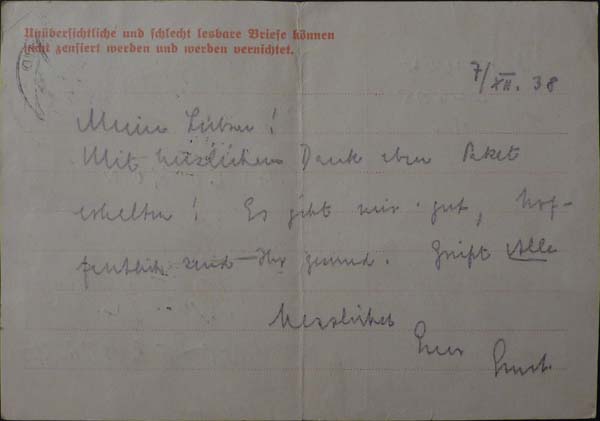 Unübersichtliche und schlecht lesbare Briefe können
nicht zensiert werden und werden vernichtet.
7/XII. 38
Meine Lieben!
Mit herzlichem Dank eben Paket
erhalten! Es geht mir gut, hof-
fentlich seid Ihr gesund. Grüßt Alle
Herzlichst
Euer
Ernst.